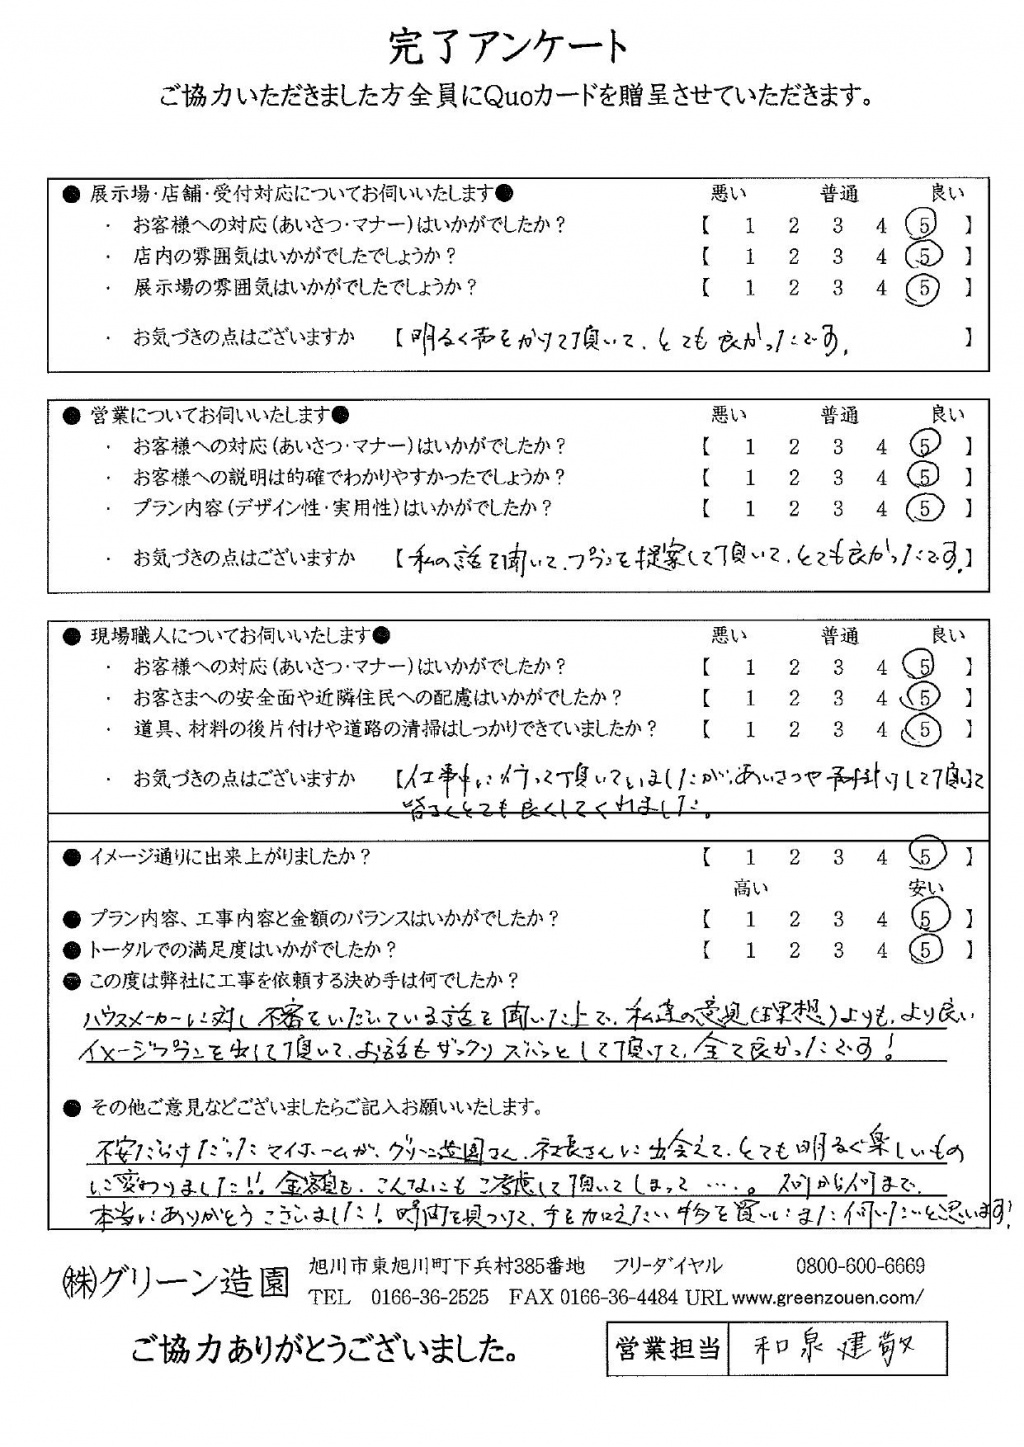 完了アンケート
ご協力いただきました方全員にQuoカードを贈呈させていただきます。
● 展示場・店舗・受付対応についてお伺いいたします● 悪い 普通 良い
・ お客様への対応(あいさつ・マナー)はいかがでしたか? 【 1 2 3 4 5 】
・ 店内の雰囲気はいかがでしたでしょうか? 【 1 2 3 4 5 】
・ 展示場の雰囲気はいかがでしたでしょうか? 【 1 2 3 4 5 】
・ お気づきの点はございますか 【明るく声をかけて頂いて、とても良かったです。 】
● 営業についてお伺いいたします● 悪い 普通 良い
・ お客様への対応(あいさつ・マナー)はいかがでしたか? 【 1 2 3 4 5 】
・ お客様への説明は的確でわかりやすかったでしょうか? 【 1 2 3 4 5 】
・ プラン内容(デザイン性・実用性)はいかがでしたか? 【 1 2 3 4 5 】
・ お気づきの点はございますか 【私の話を聞いて、プランを提案して頂いて、とても良かったです。】
● 現場職人についてお伺いいたします● 悪い 普通 良い
・ お客様への対応(あいさつ・マナー)はいかがでしたか? 【 1 2 3 4 5 】
・ お客さまへの安全面や近隣住民への配慮はいかがでしたか? 【 1 2 3 4 5 】
・ 道具、材料の後片付けや道路の清掃はしっかりできていましたか? 【 1 2 3 4 5 】
・ お気づきの点はございますか 【仕事中に行って頂いていましたが、あいさつや して頂いて
皆さんとても良くしてくれました。
● イメージ通りに出来上がりましたか? 【 1 2 3 4 5 】
高い 安い
● プラン内容、工事内容と金額のバランスはいかがでしたか? 【 1 2 3 4 5 】
● トータルでの満足度はいかがでしたか? 【 1 2 3 4 5 】
● この度は弊社に工事を依頼する決め手は何でしたか?
ハウスメーカーに対し不審をいだいている話を聞いた上で、私達の意見(理想)よりも、より良い
イメージプランを出して頂いて、お話もザックリズバッとして頂けて、全て良かったです!
● その他ご意見などございましたらご記入お願いいたします。
不安だらけだったマイホームが、グリーン造園さん、社長さんに出会えて、とても明るく楽しいもの
に変わりました!!金額も、こんなにもご考慮して頂いてしまって…。何から何まで、
本当にありがとうございました!時間を見つけて、手を加えたい物を買いにまた伺いたいと思います!
㈱グリーン造園 旭川市東旭川町下兵村385番地 フリーダイヤル 0800-600-6669
TEL 0166-36-2525 FAX 0166-36-4484 URL www.greenzouen.com/
ご協力ありがとうございました。 営業担当 和泉 建敬